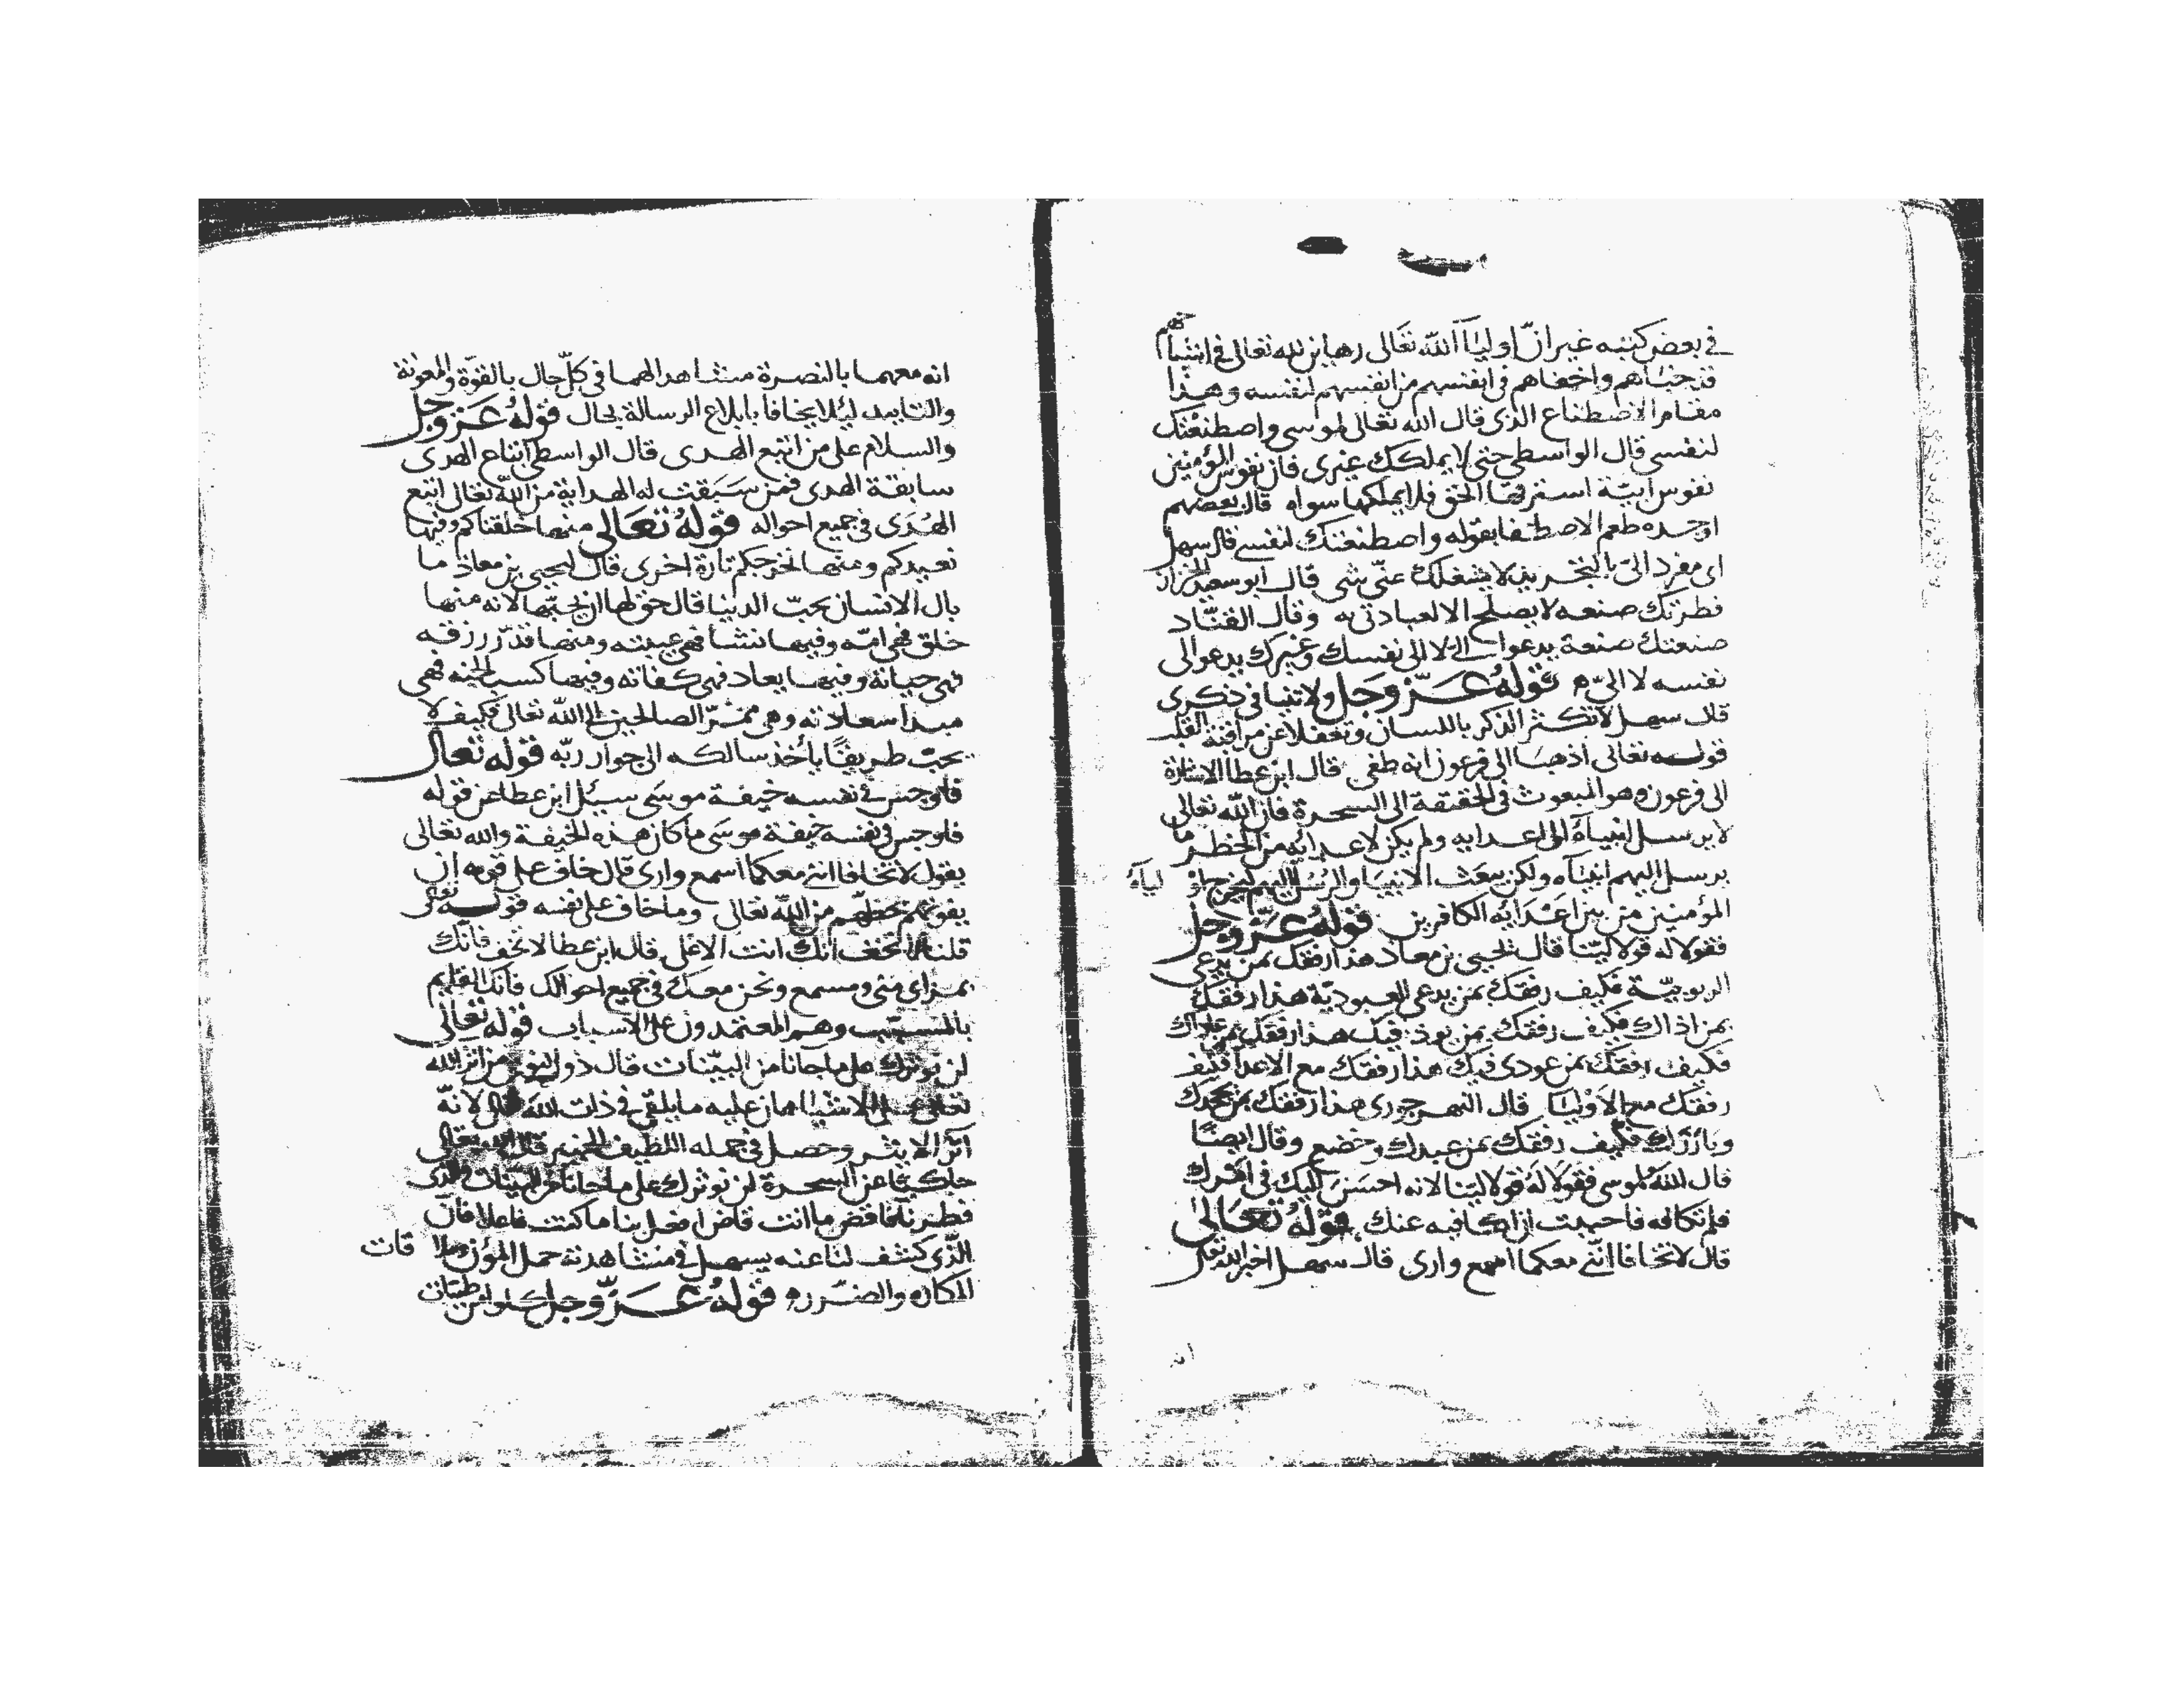 في بعض كتبه غير ان اوليآ الله تعالى رهاين لله تعالى في
قد حبساهم واخفاهم في انفسهم من انفسهم لنفسه وهذا
مقام الاصطناع الذي قال الله تعالى لموسى واصطنعتك
لنفسي قال الواسطي حتى لا يملكك غيري فان نفوس المؤمنين
نفوس ابيّة استرقها الحق فلا يملكها سواه قال بعضهم
اوجده طعم الاصطفا بقوله واصطنعتك لنفسي قال سهل
اي مفرد اليّ بالتجريد لا يشغلك عنّي شي قال ابو سعيد الخزاز
فطرتك صنعه لا يصلح الا لعبادتي وقال القنّاد
صنعتك صنعة يدعوا الي لا الى نفسك وغيرك يدعوا الى
نفسه لا اليّ قوله عزّ وجل ولا تنيا في ذكري
قال سهل لا تكثر الذكر باللسان وتغفلا عن مراقبة القلب
قوله تعالى اذهبا الى فرعون انه طغى قال ابن عطا الاشارة
الى فرعون وهو المبعوث في الحقيقة الى السحرة فان الله تعالى
لا يرسل انبياءه الى اعدايه ولم يكن لاعدايه من الخطر ما
يرسل اليهم انبياه ولكن يبعث الانبيا والرسل اليهم ليخرج اوليآءه
المؤمنين من بين اعدايه الكافرين قوله عزّ وجل
فقولا له قولا ليّنا قال يحيى بن معاذ هذا رفقك بمن يدعي
الربوبيّة فكيف رفقك بمن يدعي العبوديّة هذا رفقك
بمن اذاك فكيف رفقك بمن يوذى فيك هذا رفقك بمن عاداك
فكيف رفقك بمن عودي فيك هذا رفقك مع الاعدا فكيف
رفقك مع الاوليا قال النهرجوري هذا رفقك بمن جحدك
وبارزك فكيف رفقك بمن عبدك وخضع وقال ايضًا
قال الله لموسى فقولا له قولا لينا لانه احسن اليك في امرك
فلم تكافه فاحببت ان اكافيه عنك قوله تعالى
قال لا تخافا انّني معكما اسمع وارى قال سهل اخبر الله تعالى
انه معهما بالنصرة مشاهدا لهما في كلّ حال بالقوّة والمعونة
والتاييد ليلا يخافا بابلاغ الرسالة بحال قوله عز وجل
والسلام على من اتبع الهدى قال الواسطي اتباع الهدى
سابقة الهدى فمن سبقت له الهداية من الله تعالى اتبع
الهدى في جميع احواله قوله تعالى منها خلقناكم وفيها
نعيدكم ومنها نخرجكم تارة اخرى قال يحيى بن معاذ ما
بال الانسان يحبّ الدينا قال حق لها ان يحبّها لانه منها
خلق فهي امّه وفيها نشا فهي عيشه ومنها قدّر رزقه
فهي حياته وفيها يعاد فهي كفاته وفيها كسب الجنه فهي
مبدا سعادته وهي ممرّ الصالحين الى الله تعالى فكيف لا
يحبّ طريقًا يأخذ سالكه الى جوار ربّه قوله تعالى
فاوجس في نفسه خيفة موسى سيئل ابن عطا عن قوله
فاوجس في نفسه خيفة موسى ما كان هذه الخيفة والله تعالى
يقول لا تخافا انني معكما اسمع وارى قال خاف على قومه ان
يفوتهم حظهم من الله تعالى وما خاف على نفسه قوله تعالى
قلنا لا تخف انك انت الاعلى قال ابن عطا لا تخف فانك
بمراى منّي ومسمع ونحن معك في جميع احوالك فانك القايم
بالمسبب وهم المعتمدون على الاسباب قوله تعالى
لن نوثرك على ما جانا من البيّنات قال ذو النون من اثر الله
تعالى على الاشيا هان عليه ما يلقى في ذات الله لانّه
آثر الايثر وحصل في جمله اللطيف الخبير قال الله تعالى
حاكيًا عن السحرة لن نوثرك على ما جانا من البيّنات والذي
فطرنا فاقض ما انت قاض افعل بنا ما كنت فاعلا فان
الذّي كشف لنا عنه يسهل في مشاهدته حمل المؤن وملاقات
المكاره والضرر قوله عزّ وجل كلوا من طيّبات